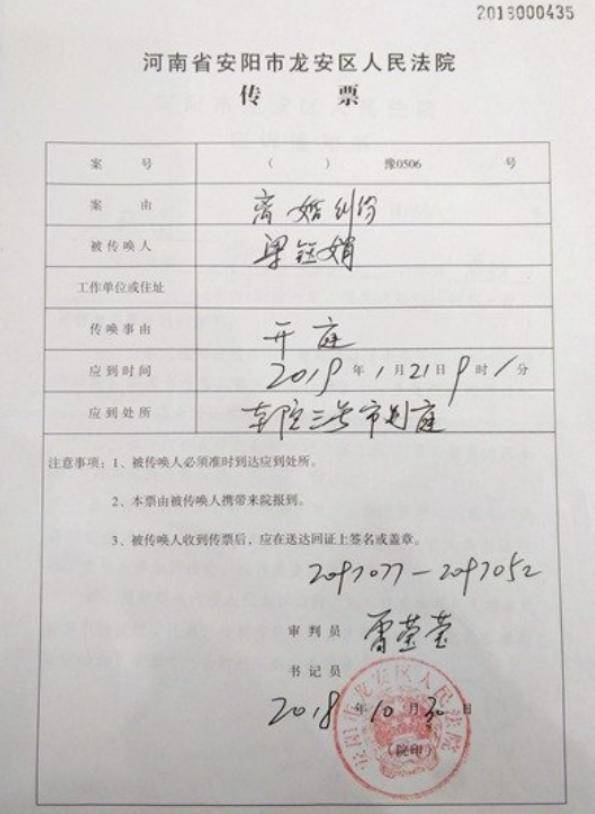 2018000435
河南省安阳市龙安区人民法院
传 票
案 号 （ ） 豫0506 号
案 由 离婚纠纷
被传唤人 梁钰娟
工作单位或住址
传唤事由 开庭
应到时间 2019年1月21日9时/分
应到处所 东院三号审判庭
注意事项：1、被传唤人必须准时到达应到处所。
2、本票由被传唤人携带来院报到。
3、被传唤人收到传票后，应在送达回证上签名或盖章。
2097077—2097052
审判员
书记员
2018年10月30日
安阳市龙安区人民法院
（院印）